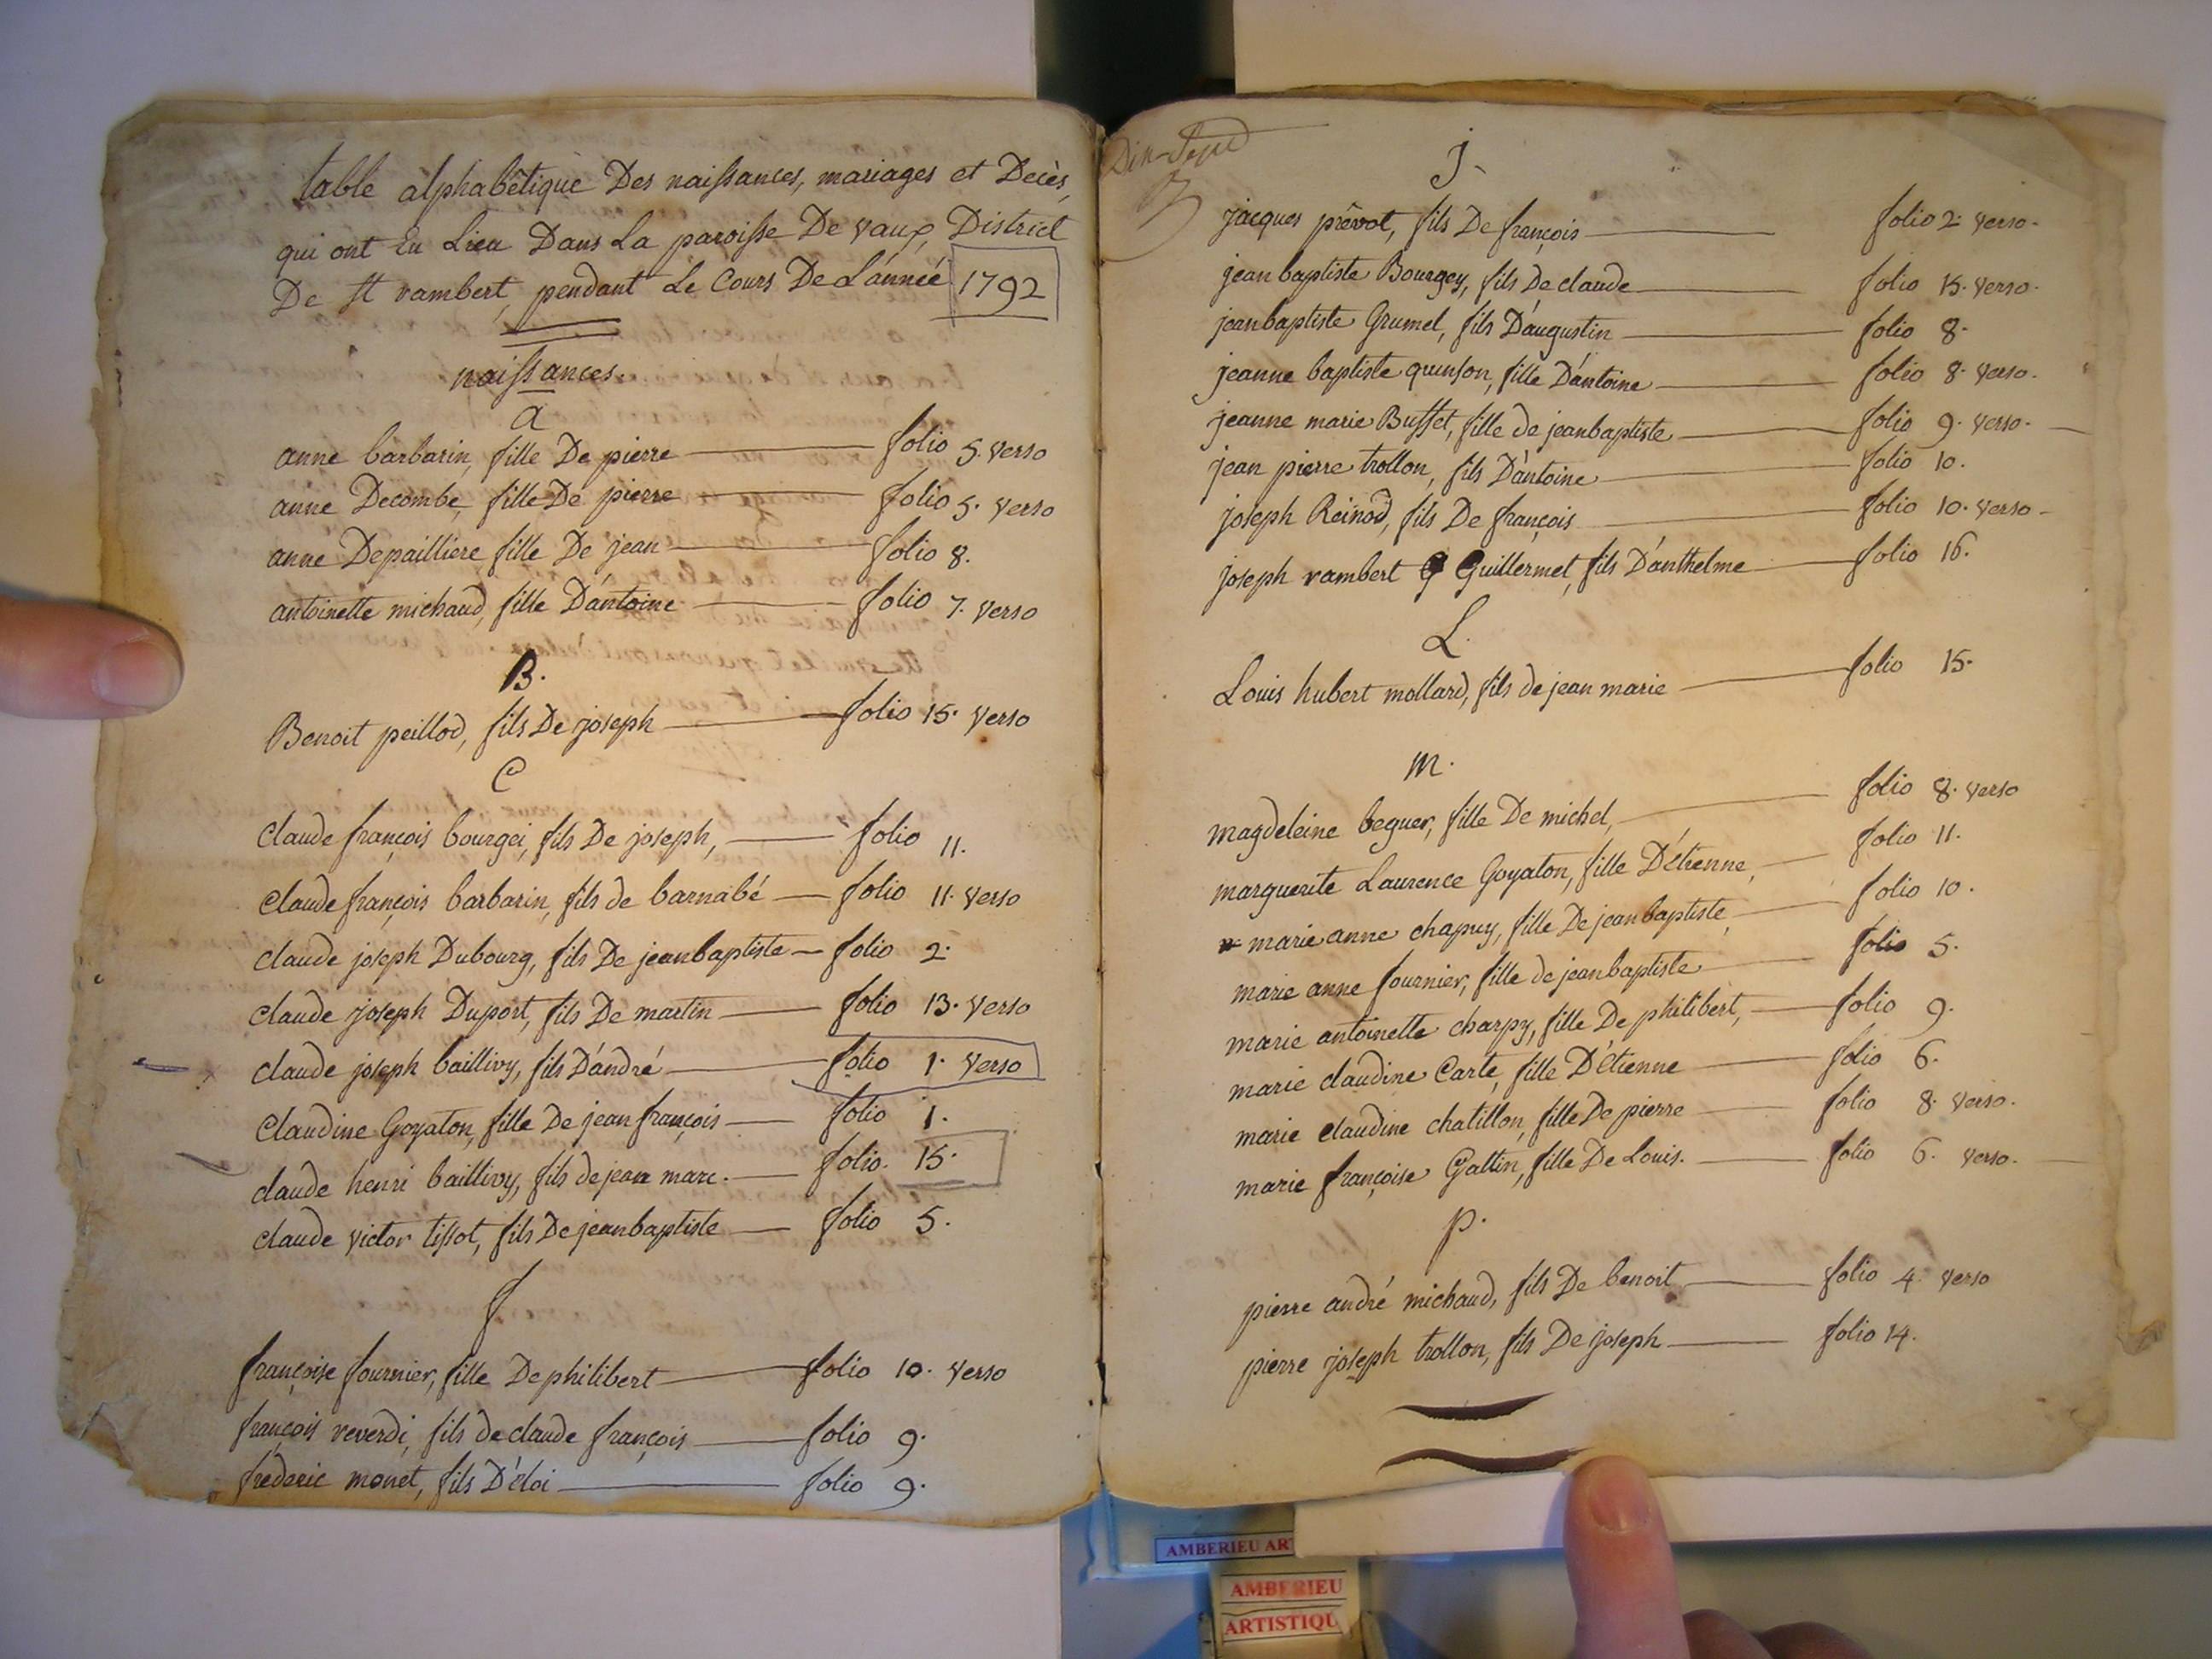 table alphabêtique Des naissances, mariages et Decès,
qui ont Eu Lieu Dans La paroisse De vaux, District
De St rambert, pendant Le Cours De L'année 1792
naissances.
a
anne barbarin, fille De pierre folio 5. verso
anne Decombe, fille De pierre folio 5. verso
anne Depailliere fille De jean folio 8.
antoinette michaud, fille D'antoine folio 7. verso
B.
Benoit peillod, fils De joseph folio 15. verso
C
Claude françois bourgei, fils De joseph, folio 11.
Claude françois barbarin, fils de barnabé folio 11. verso
claude joseph Dubourg, fils De jeanbaptiste folio 2.
claude joseph Duport, fils De martin folio 13. verso
claude joseph baillivy, fils D'andré folio 1. verso
Claudine Goyaton, fille De jean françois folio 1.
claude henri baillivy, fils de jean marc. folio. 15.
claude victor tissot, fils De jeanbaptiste folio 5.
f
françoise fournier, fille De philibert folio 10. verso
françois reverdi, fils de claude françois folio 9.
frederic monet, fils D'eloi folio 9.
Dix-Sept
J.
jacques prêvot, fils De françois folio 2. verso.
jean baptiste Bourgey, fils De claude folio 15. verso.
jeanbaptiste Grumel, fils D'augustin folio 8.
jeanne baptiste quinson, fille D'antoine folio 8. verso.
jeanne marie Buffet, fille de jeanbaptiste folio 9. verso.
jean pierre trollon, fils D'antoine folio 10.
joseph Reinod, fils De françois folio 10. verso
joseph rambert G Guillermet, fils D'anthelme folio 16.
L.
Louis hubert mollard, fils de jean marie folio 15.
m.
magdeleine beguer, fille De michel, folio 8. verso
marguerite Laurence Goyaton, fille D'étienne, folio 11.
marie anne chapuy, fille De jean baptiste, folio 10.
marie anne fournier, fille de jeanbaptiste folio 5.
marie antoinette charpy, fille De philibert, folio 9.
marie claudine Carte, fille D'étienne folio 6.
marie claudine chatillon, fille De pierre folio 8. verso.
marie françoise Gallin, fille De Louis. folio 6. verso.
p.
pierre andré michaud, fils De benoit folio 4. verso
pierre joseph trollon, fils De joseph folio 14.
AMBERIEU AR
AMBERIEU
ARTISTIQU